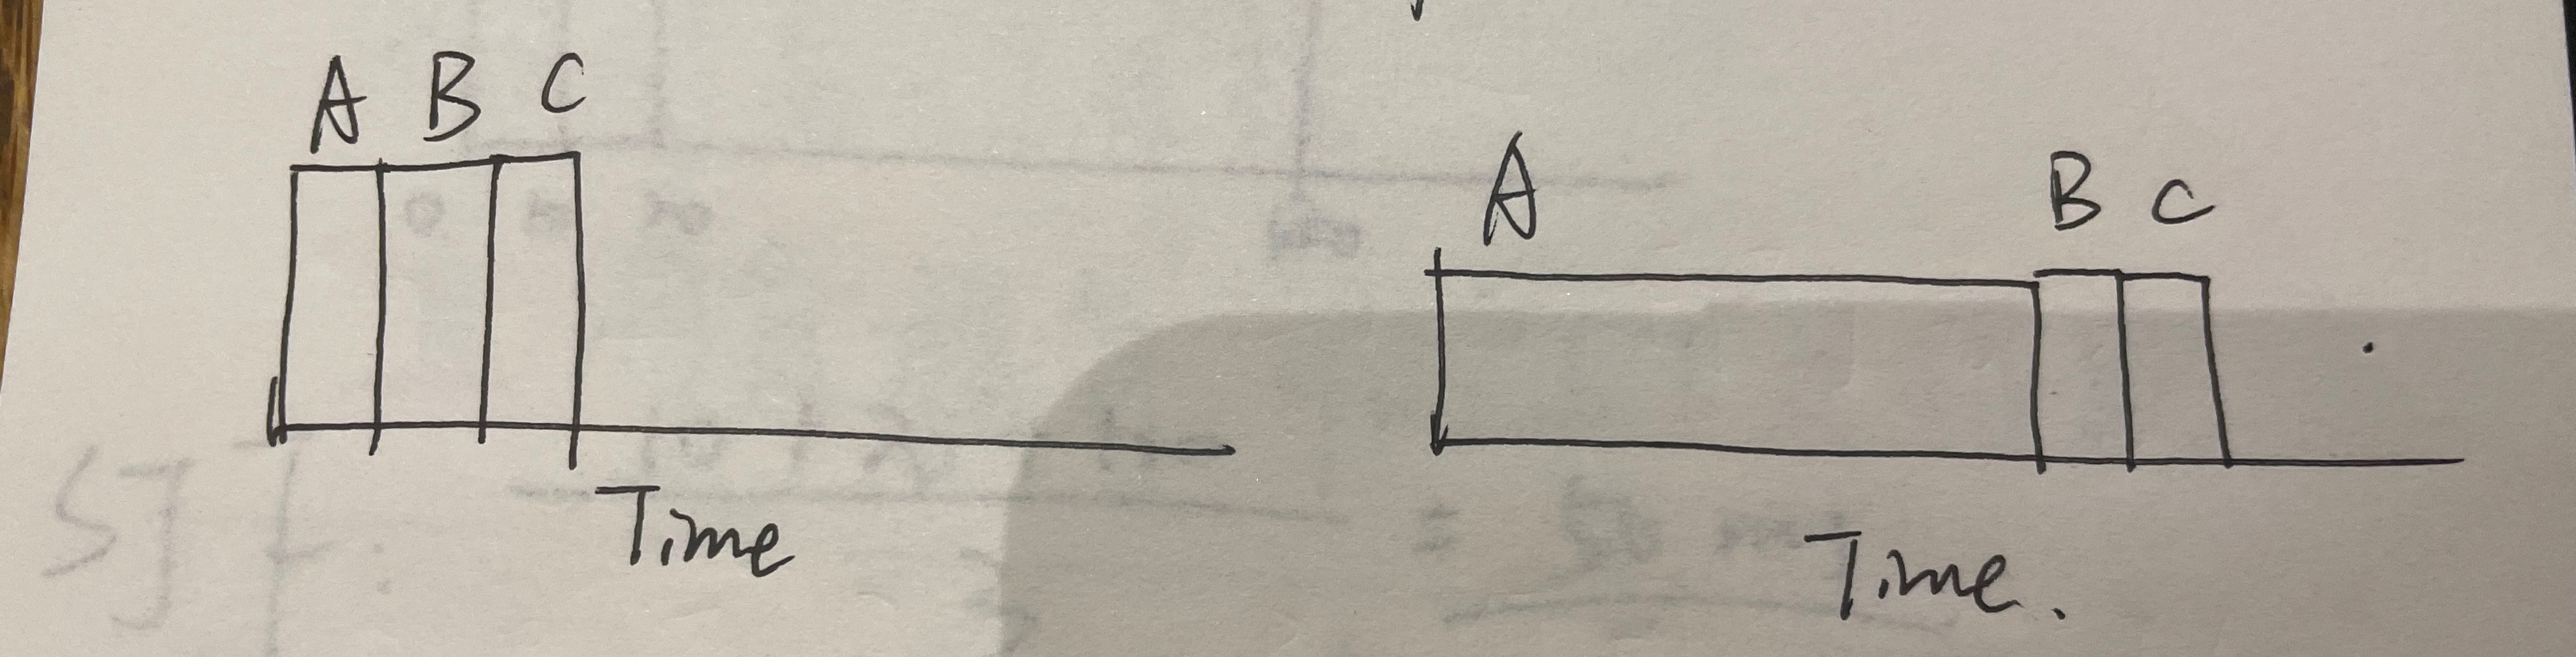 A B C
Time
A
B C
Time.